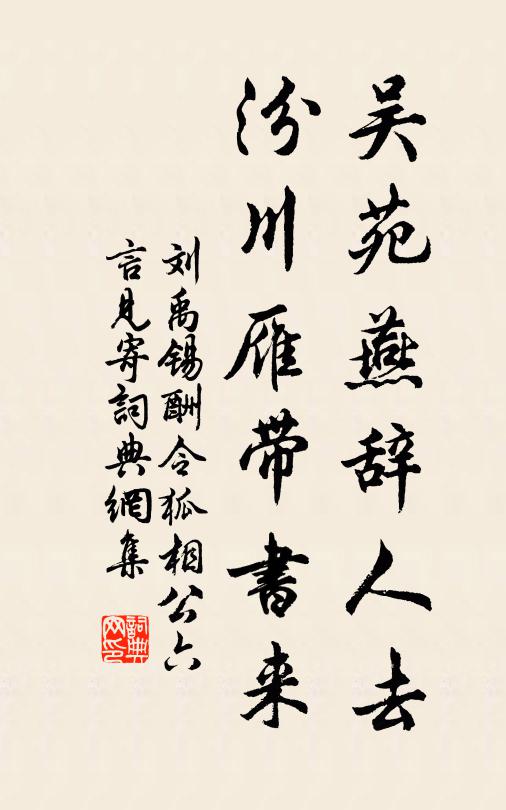 吴苑燕辞人去
汾川雁带書来
刘禹锡酬令狐相公六
言見寄詞典網集
詞典网印